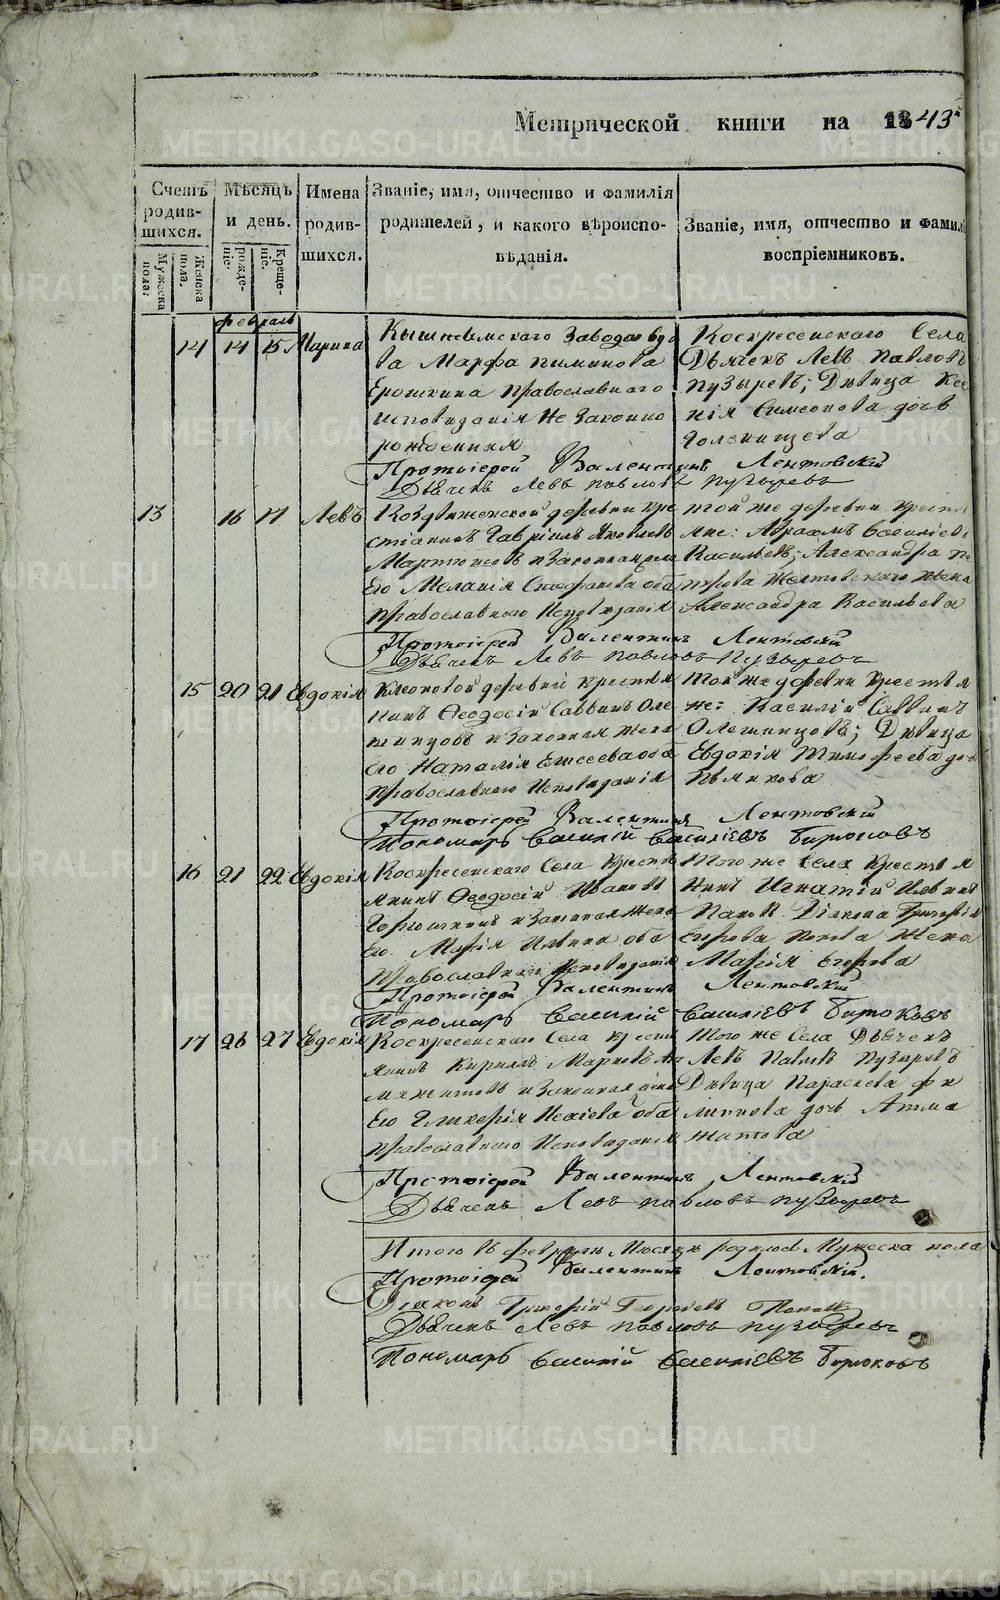 Метрической книги на 1843й
Счетъ родив-шихся.
Мужеска пола.
Женска пола.
Мѣсяцъ и день.
рожде-ніе.
Креще-ніе.
Имена родив-шихся.
Званіе, имя, отчество и фамилія
родителей, и какого вѣроиспо-
вѣданія.
Званіе, имя, отчество и фамил
воспріемниковъ.
февраль
14 14 15 Марина
Кыштымскаго Завода вдо
ва Марфа Пиминова
Ерошкина Православнаго
исповѣданія не законно
рожденная
Воскресенскаго Села
Дьячекъ Левъ Павловъ
Пузыревъ; Дѣвица Ксе
нія Симеонова дочь
Голенищева
Протоіерей Валентинъ Лентовскій
Дьячекъ Левъ Павловъ Пузыревъ
13 16 17 Левъ
Воздвиженской деревни кре
стіанинъ Гавріилъ Яковлевъ
Мартюшевъ и законная жена
Его Меланія Стефанова оба
православнаго Исповѣданія
той же деревни крестья
Авраамъ Василіевъ
Васильевъ; Александра Пе
трова
Александра Васильева
Протоіерей Валентинъ Лентовскій
Дьячекъ Левъ Павловъ Пузыревъ
15 20 21 Евдокія
деревни крестья
нинъ Ѳеодосій Саввинъ Оле
шинцовъ и законная жена
его Наталія Елисеева оба
православнаго Исповѣданія
той же деревни крестья
не: Василій Саввинъ
Олешинцовъ; Дѣвица
Евдокія Тимофеева доч
Пьянкова
Протоіерей Валентинъ Лентовскій
Пономарь Василій Василіевъ Бирюковъ
16 21 22 Евдокія
Воскресенскаго Села кресть
янинъ Ѳеодосій Ивановъ
и законная жена
Его Марія Ильина оба
православнаго Исповѣданія
Того же села крестья
нинъ Игнатій Ильинъ
Пановъ Діакона Григорія
Егорова Попова жена
Марія Егорова
Протоіерей Валентинъ Лентовскій
Пономарь Василій Василіевъ Бирюковъ
17 26 27 Евдокія
Воскресенскаго Села кресть
янинъ Кириллъ Марковъ Ах
маметовъ и законная жена
Его Гликерія Исаіева оба
православнаго Исповѣданія
Того же Села Дьячекъ
Левъ Павловъ Пузыревъ
Дѣвица Параскева Фи
липпова дочь Ахма
метова
Протоіерей Валентинъ Лентовскій
Дьячекъ Левъ Павловъ Пузыревъ
Итого въ февралѣ Мѣсяцѣ родилось Мужеска пола
Протоіерей Валентинъ Лентовскій.
Діаконъ Григорій Георгіевъ Поповъ
Дьячекъ Левъ Павловъ Пузыревъ
Пономарь Василій Василіевъ Бирюковъ
METRIKI.GASO-URAL.RU